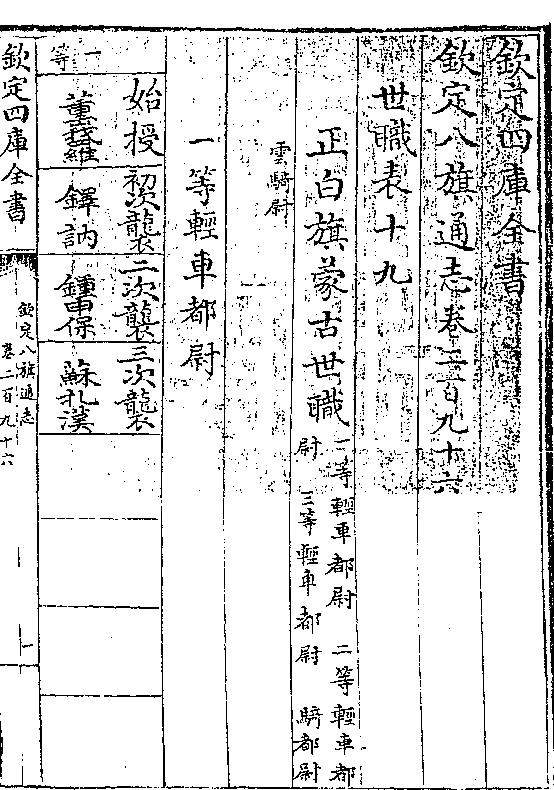 欽定四庫全書
欽定八旗通志卷二百九十六
世職表十九
正白旗蒙古世職 一等輕車都尉 二等輕車都
尉 三等輕車都尉 騎都尉
雲騎尉
一等輕車都尉
始授 初次襲 二次襲 三次襲
一等
鐸訥 鍾申保 蘇扎漢
欽定四庫全書
欽定八旗通志
卷二百九十六
一